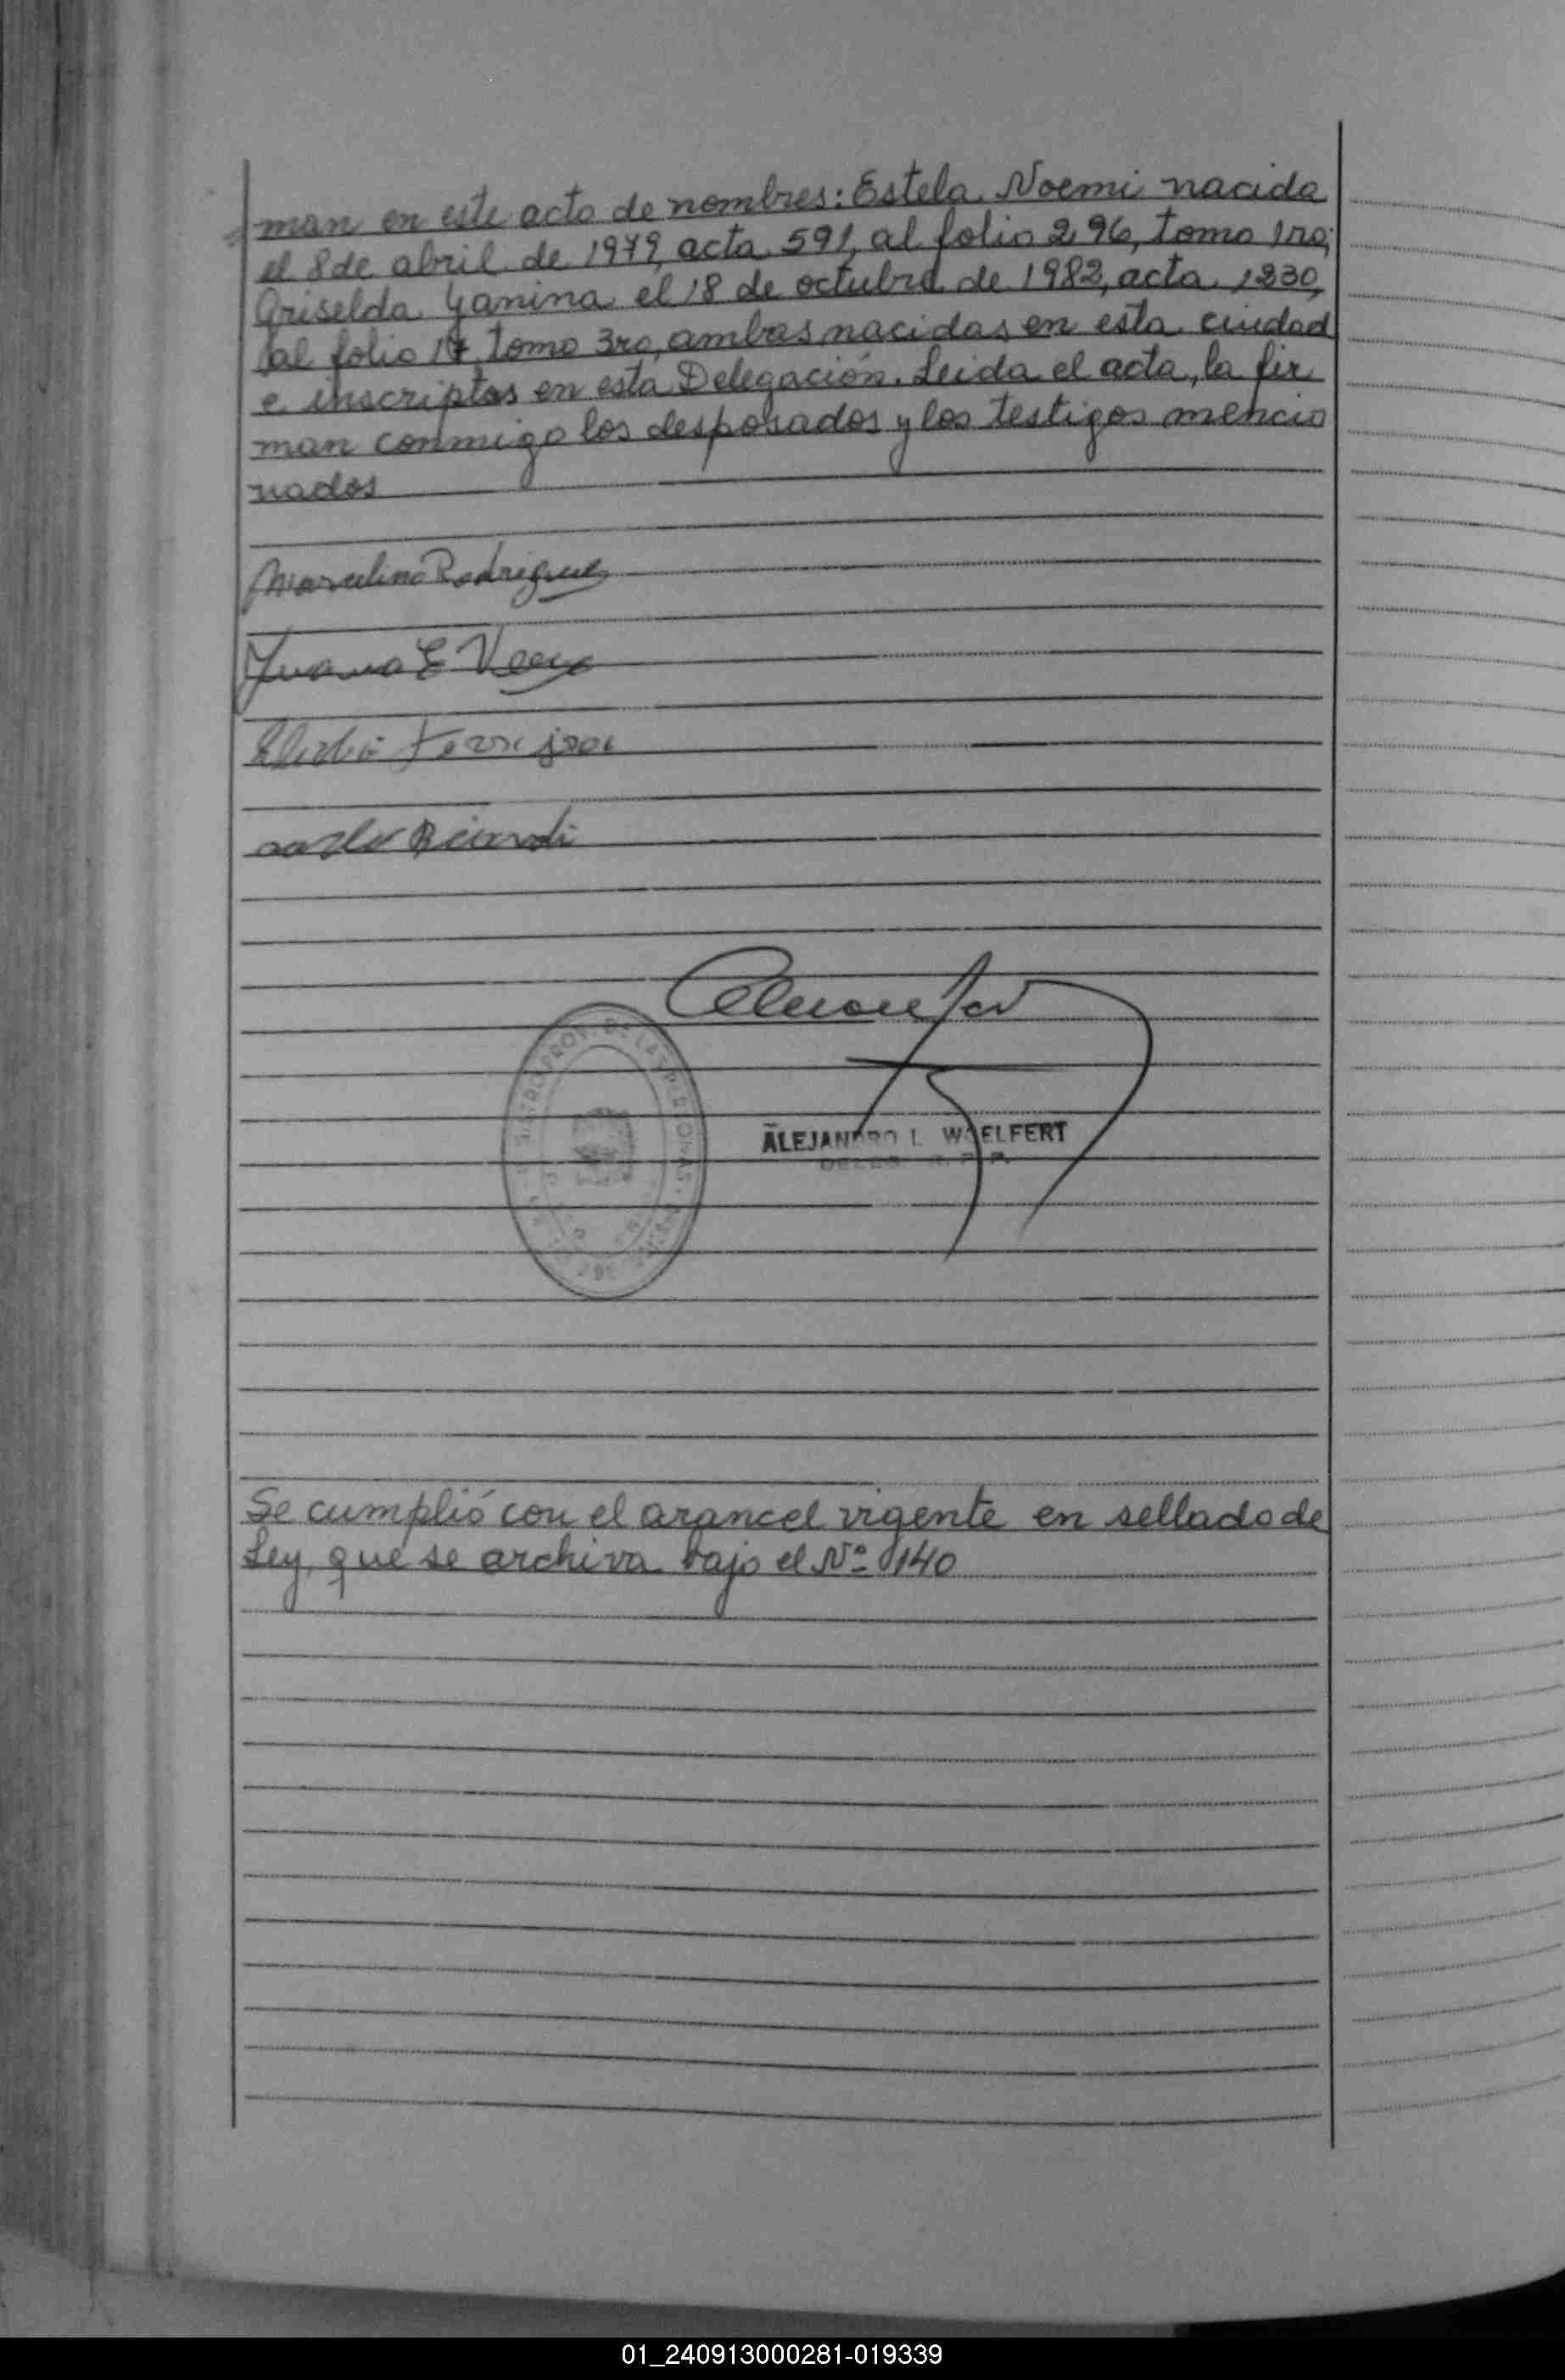 man en este acto de nombres: Estela Noemi nacida
el 8 de abril de 1979, acta 591, al folio 296, tomo 1ro;
Griselda Yanina el 18 de octubre de 1982, acta 1230,
al folio 17, tomo 3ro, ambas nacidas en esta ciudad
e inscriptas en esta Delegación. Leida el acta, la fir
man conmigo los desposados y los testigos mencio
nados
Marcelino Rodriguez
Juana E
ALEJANDRO L WOELFERT
Se cumplió con el arancel vigente en sellado de
Ley, que se archiva bajo el Nº 140
01_240913000281-019339